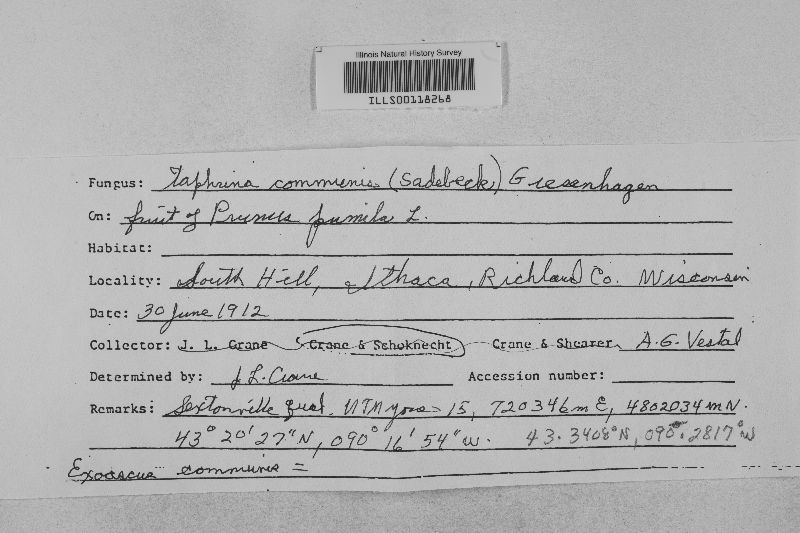 Illinois Natural History Survey
ILLS00118268
Fungus: Taphrina communis (Sadebeck) Giesenhagen
On: fruit of Prunus pumila L.
Habitat:
Locality: South Hill, Ithaca, Richland Co. Wisconsin
Date: 30 June 1912
Collector: J. L. Crane Crane & Schoknecht Crane & Shearer A.G. Vestal
Determined by: J.L. Crane Accession number:
Remarks: Sextonville Quad. UTM 15, 720346mE, 4802034mN.
43° 20' 27" N, 090° 16' 54" W. 43.3408° N, 090.2817° W
Exoascus communis =